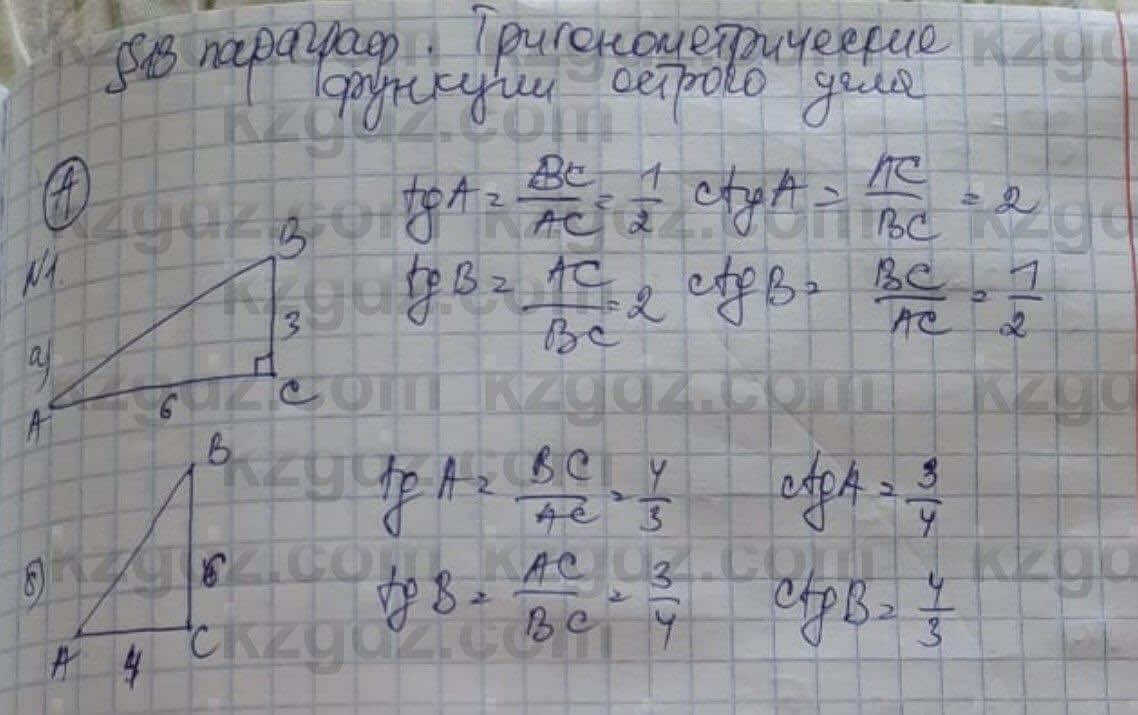 §18 параграф. Тригонометрические
функции острого угла
А
№1.
а)
B
3
A
6
C
tgA = BC/AC = 1/2 ctgA = AC/BC = 2
tgB = AC/BC = 2 ctgB = BC/AC = 1/2
б)
B
A
4
C
tgA = BC/AC = 4/3 ctgA = 3/4
tgB = AC/BC = 3/4 ctgB = 4/3
kzgdz.com